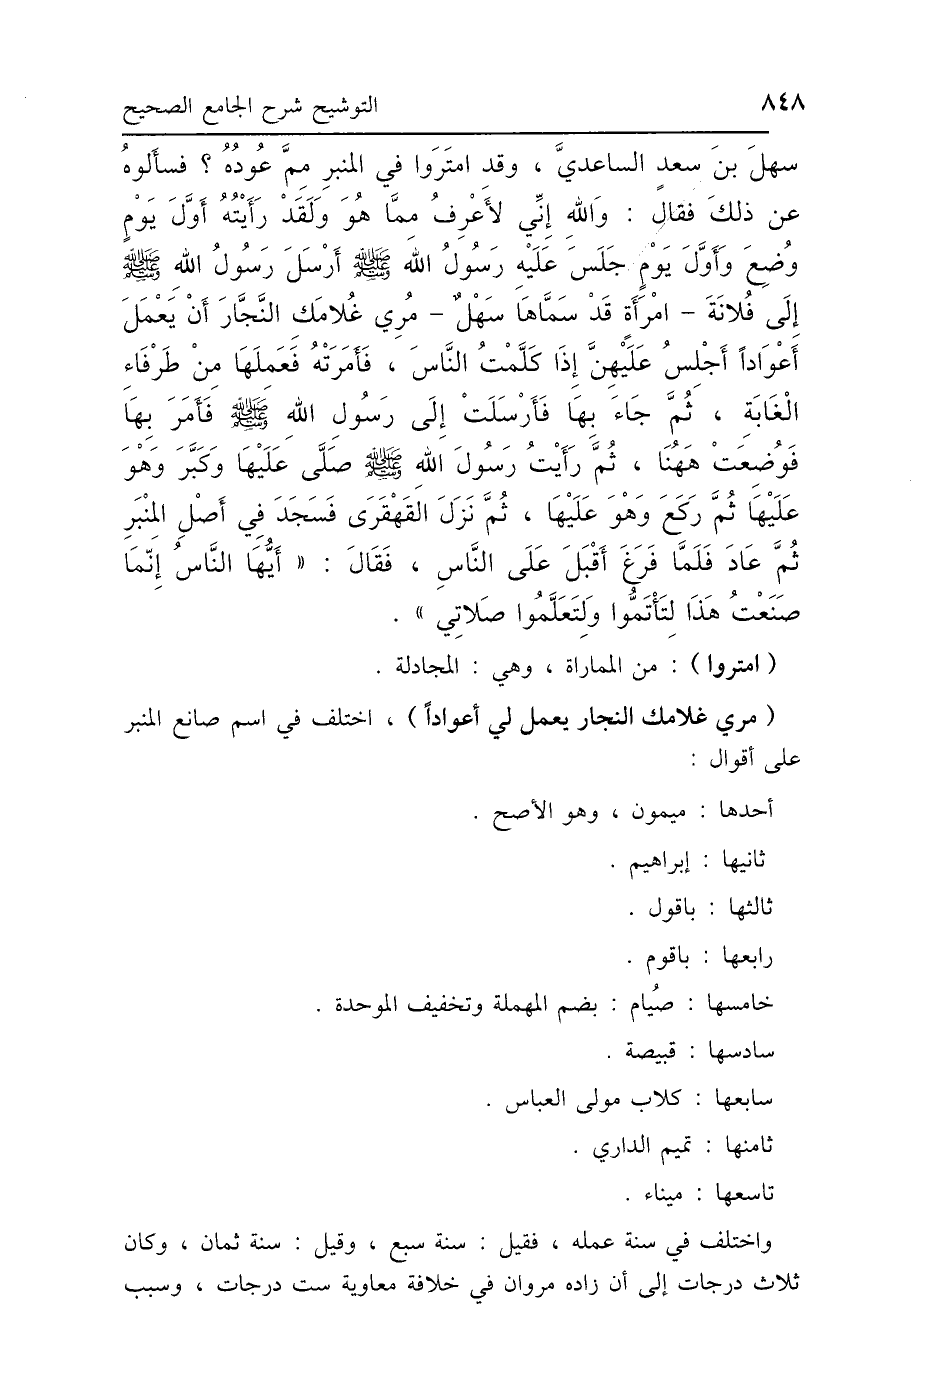 ٨٤٨ التوشيح شرح الجامع الصحيح
سهلَ بنَ سعدٍ الساعديَّ ، وقد امترَوا في المنبرِ ممَّ عُودُهُ ؟ فسألوهُ
عن ذلكَ فقالِ : وَاللهِ إنِّي لأَعْرِفُ مِمَّا هُوَ وَلَقَدْ رَأَيْتُهُ أوَّلَ يَوْمٍ
وُضِعَ وَأوَّلَ يَوْمٍ جَلَسَ عَلَيْهِ رَسُولُ اللهِ ﷺ أرْسَلَ رَسُولُ اللهِ ﷺ
إِلَى فُلانَةَ – امْرأَةٍ قَدْ سَمَّاهَا سَهْلٌ – مُرِي غُلامَكِ النَّجَّارَ أنْ يَعْمَلَ
أعْوَاداً أجْلِسُ عَلَيْهِنَّ إذَا كَلَّمْتُ النَّاسَ ، فَأمَرَتْهُ فَعَمِلَهَا مِنْ طَرْفَاءِ
الْغَابَةِ ، ثُمَّ جَاءَ بِهَا فَأرْسَلَتْ إلَى رَسُولِ اللهِ ﷺ فَأمَرَ بِهَا
فَوُضِعَتْ هَهُنَا ، ثُمَّ رَأيْتُ رَسُولَ اللهِ ﷺ صَلَّى عَلَيْهَا وَكَبَّرَ وَهْوَ
عَلَيْهَا ثُمَّ رَكَعَ وَهْوَ عَلَيْهَا ، ثُمَّ نَزَلَ القَهْقَرَى فَسَجَدَ فِي أصْلِ المِنْبَرِ
ثُمَّ عَادَ فَلَمَّا فَرَغَ أقْبَلَ عَلَى النَّاسِ ، فَقَالَ : « أيُّهَا النَّاسُ إنّمَا
صَنَعْتُ هَذَا لِتَأْتَمُّوا وَلِتَعَلَّمُوا صَلاتِي » .
( امتروا ) : من المماراة ، وهي : المجادلة .
( مري غلامك النجار يعمل لي أعواداً ) ، اختلف في اسم صانع المنبر
على أقوال :
أحدها : ميمون ، وهو الأصح .
ثانيها : إبراهيم .
ثالثها : باقول .
رابعها : باقوم .
خامسها : صُيام : بضم المهملة وتخفيف الموحدة .
سادسها : قبيصة .
سابعها : كلاب مولى العباس .
ثامنها : تميم الداري .
تاسعها : ميناء .
واختلف في سنة عمله ، فقيل : سنة سبع ، وقيل : سنة ثمان ، وكان
ثلاث درجات إلى أن زاده مروان في خلافة معاوية ست درجات ، وسبب